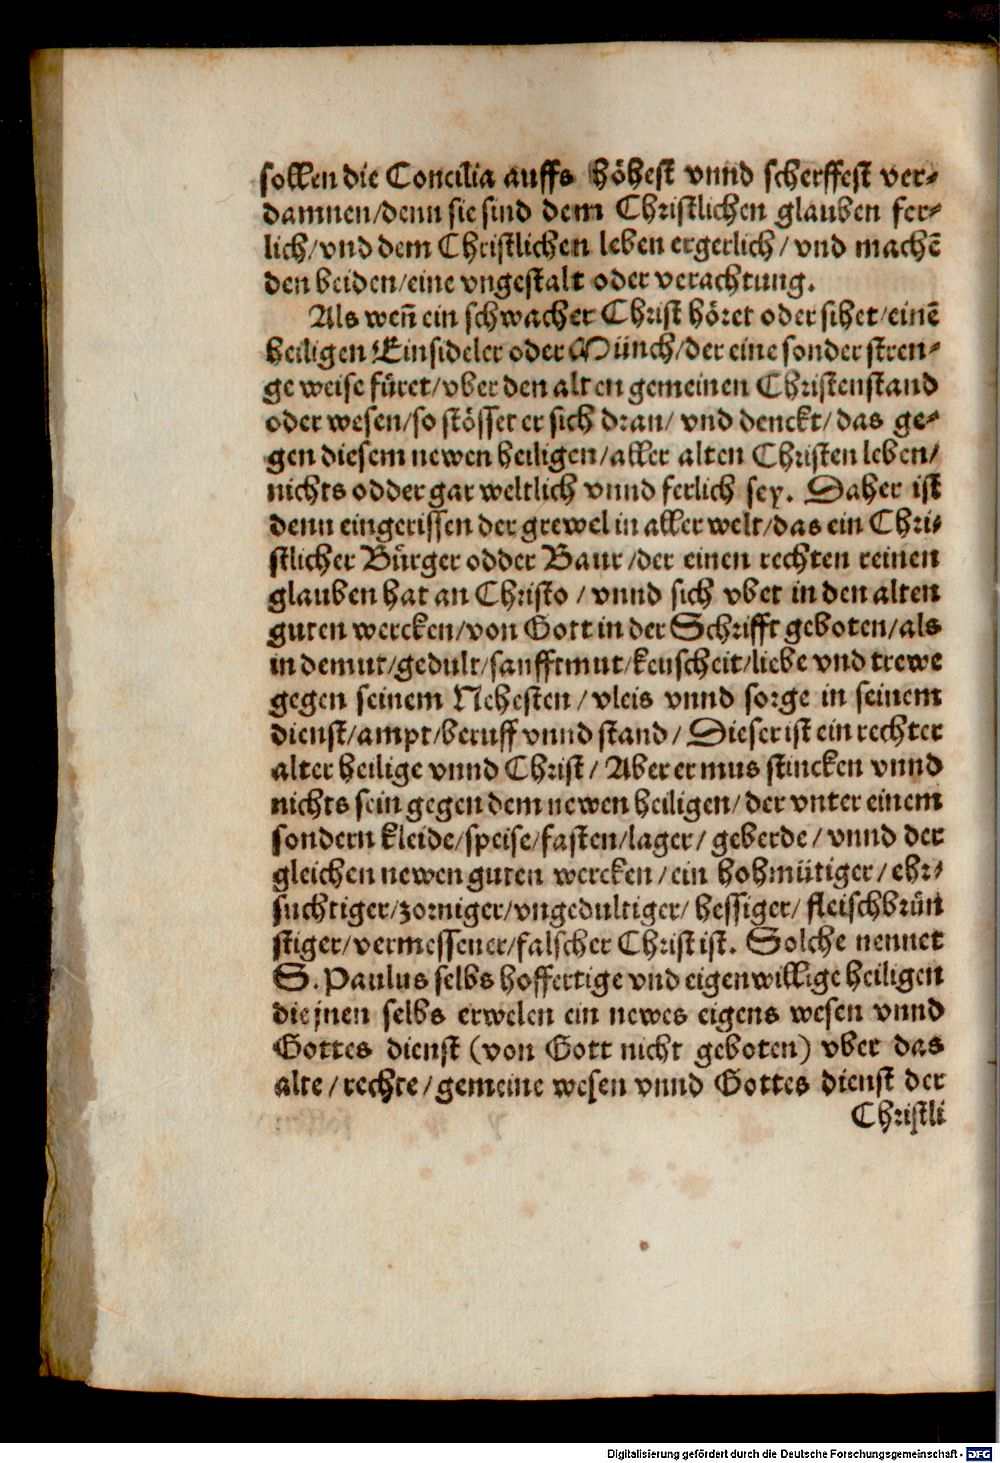 sollen die Concilia auffs höhest vnnd scherffest ver⸗
damnen/denn sie sind dem Christlichen glauben fer⸗
lich/vnd dem Christlichen leben ergerlich/vnd machē
den beiden/eine vngestalt oder verachtung.
Als weñ ein schwacher Christ höret oder sihet/einē
heiligen Einsideler oder Münch/der eine sonder stren⸗
ge weise füret/vber den alten gemeinen Christenstand
oder wesen/so stösset er sich dran/vnd denckt/das ge⸗
gen diesem newen heiligen/aller alten Christen leben/
nichts odder gar weltlich vnnd ferlich sey. Daher ist
denn eingerissen der grewel in aller welt/das ein Chri⸗
stlicher Bürger odder Baur/der einen rechten reinen
glauben hat an Christo/vnnd sich vbet in den alten
guten wercken/von Gott in der Schrifft geboten/als
in demut/gedult/sanfftmut/keuscheit/liebe vnd trewe
gegen seinem Nehesten/vleis vnnd sorge in seinem
dienst/ampt/beruff vnnd stand/Dieser ist ein rechter
alter heilige vnnd Christ/Aber er mus stincken vnnd
nichts sein gegen dem newen heiligen/der vnter einem
sondern kleide/speise/fasten/lager/geberde/vnnd der
gleichen newen guten wercken/ein hohmütiger/ehr⸗
suchtiger/zorniger/vngedultiger/hessiger/fleischbrün
stiger/vermessener/falscher Christ ist. Solche nennet
S. Paulus selbs hoffertige vnd eigenwillige heiligen
die jnen selbs erwelen ein newes eigens wesen vnnd
Gottes dienst (von Gott nicht geboten) vber das
alte/rechte/gemeine wesen vnnd Gottes dienst der
Christli
Digitalisierung gefördert durch die Deutsche Forschungsgemeinschaft - DFG